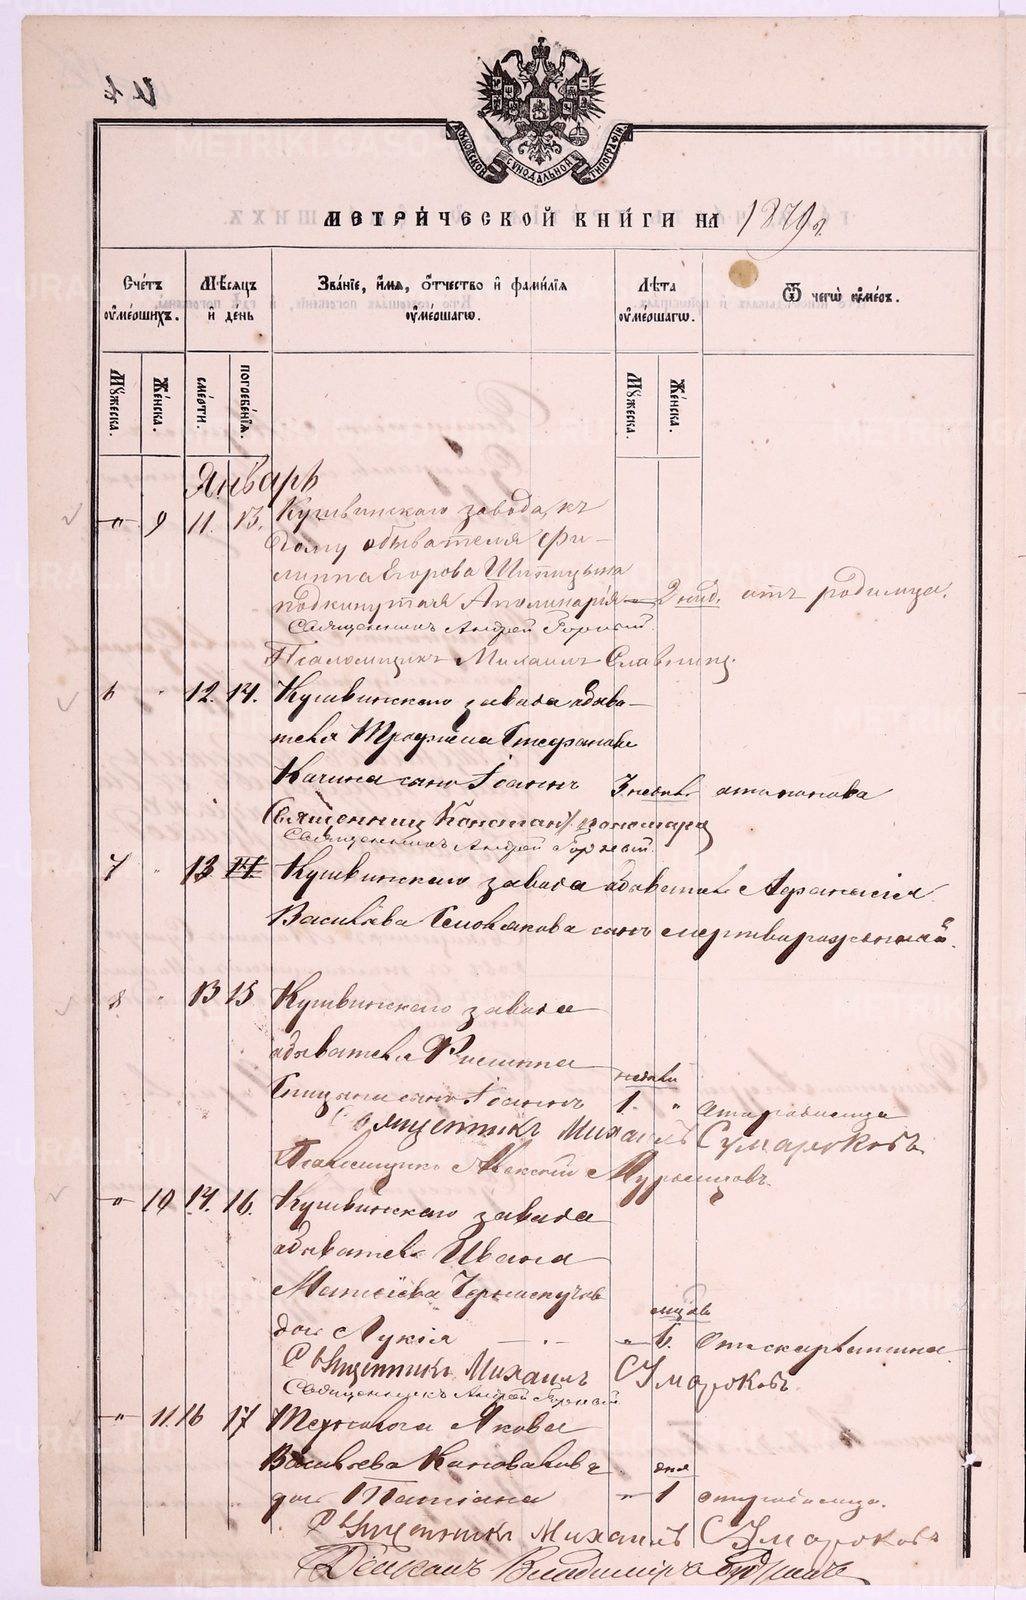 МОСКОВСКОЙ СУНОДАЛЬНОЙ ТИПОГРАФІИ
МЕТРИ́ЧЕСКОЙ КНИ́ГИ НА 1879 г.
Сче́тъ ѹ҆ме́ршихъ.
Мѣ́сяцъ и҆ де́нь
Зва́ніе, и҆́мя, ѻ҆́тчество и҆ фами́лія ѹ҆ме́ршагѡ.
Лѣ́та ѹ҆ме́ршагѡ.
Ѿ чегѡ̀ ѹ҆́меръ.
Мꙋ́жеска.
Же́нска.
сме́рти.
погребе́нія.
Мꙋ́жеска.
Же́нска.
Январь
" 9 11. 13. Кушвинскаго завода, къ
дому обывателя Фи-
липпа Егорова Шипицына
подкинутая Аполинарія 2 нед. отъ родимца.
Священникъ Андрей Горный.
Псаломщикъ Михаилъ Славнинъ.
6 " 12. 14. Кушвинскаго завода обыва-
теля Трофима Стефанова
Качина сынъ Іоаннъ 3 отъ поноса
Священникъ Констан. Пономаревъ
Священникъ Андрей Горный.
7 " 13 14 Кушвинскаго завода обывателя Афанасія
Васильева сынъ мертворожденный.
8. " 13 15 Кушвинскаго завода
обывателя Филиппа
недѣли
сынъ Іоаннъ 1. " отъ родимца
Священникъ Михаилъ Сумароковъ
Псаломщикъ Алексій
" 10 14. 16. Кушвинскаго завода
обывателя Ивана
Матѳіева
мѣсяц.
дочь Лукія " 6. отъ скарлатины
Священникъ Михаилъ Сумароковъ.
Священникъ Андрей Горный
" 11. 16 17 Якова
Васильева Коновалова
дня
дочь Татіана " 1 отъ родимца.
Священникъ Михаилъ Сумароковъ
Діаконъ Владиміръ